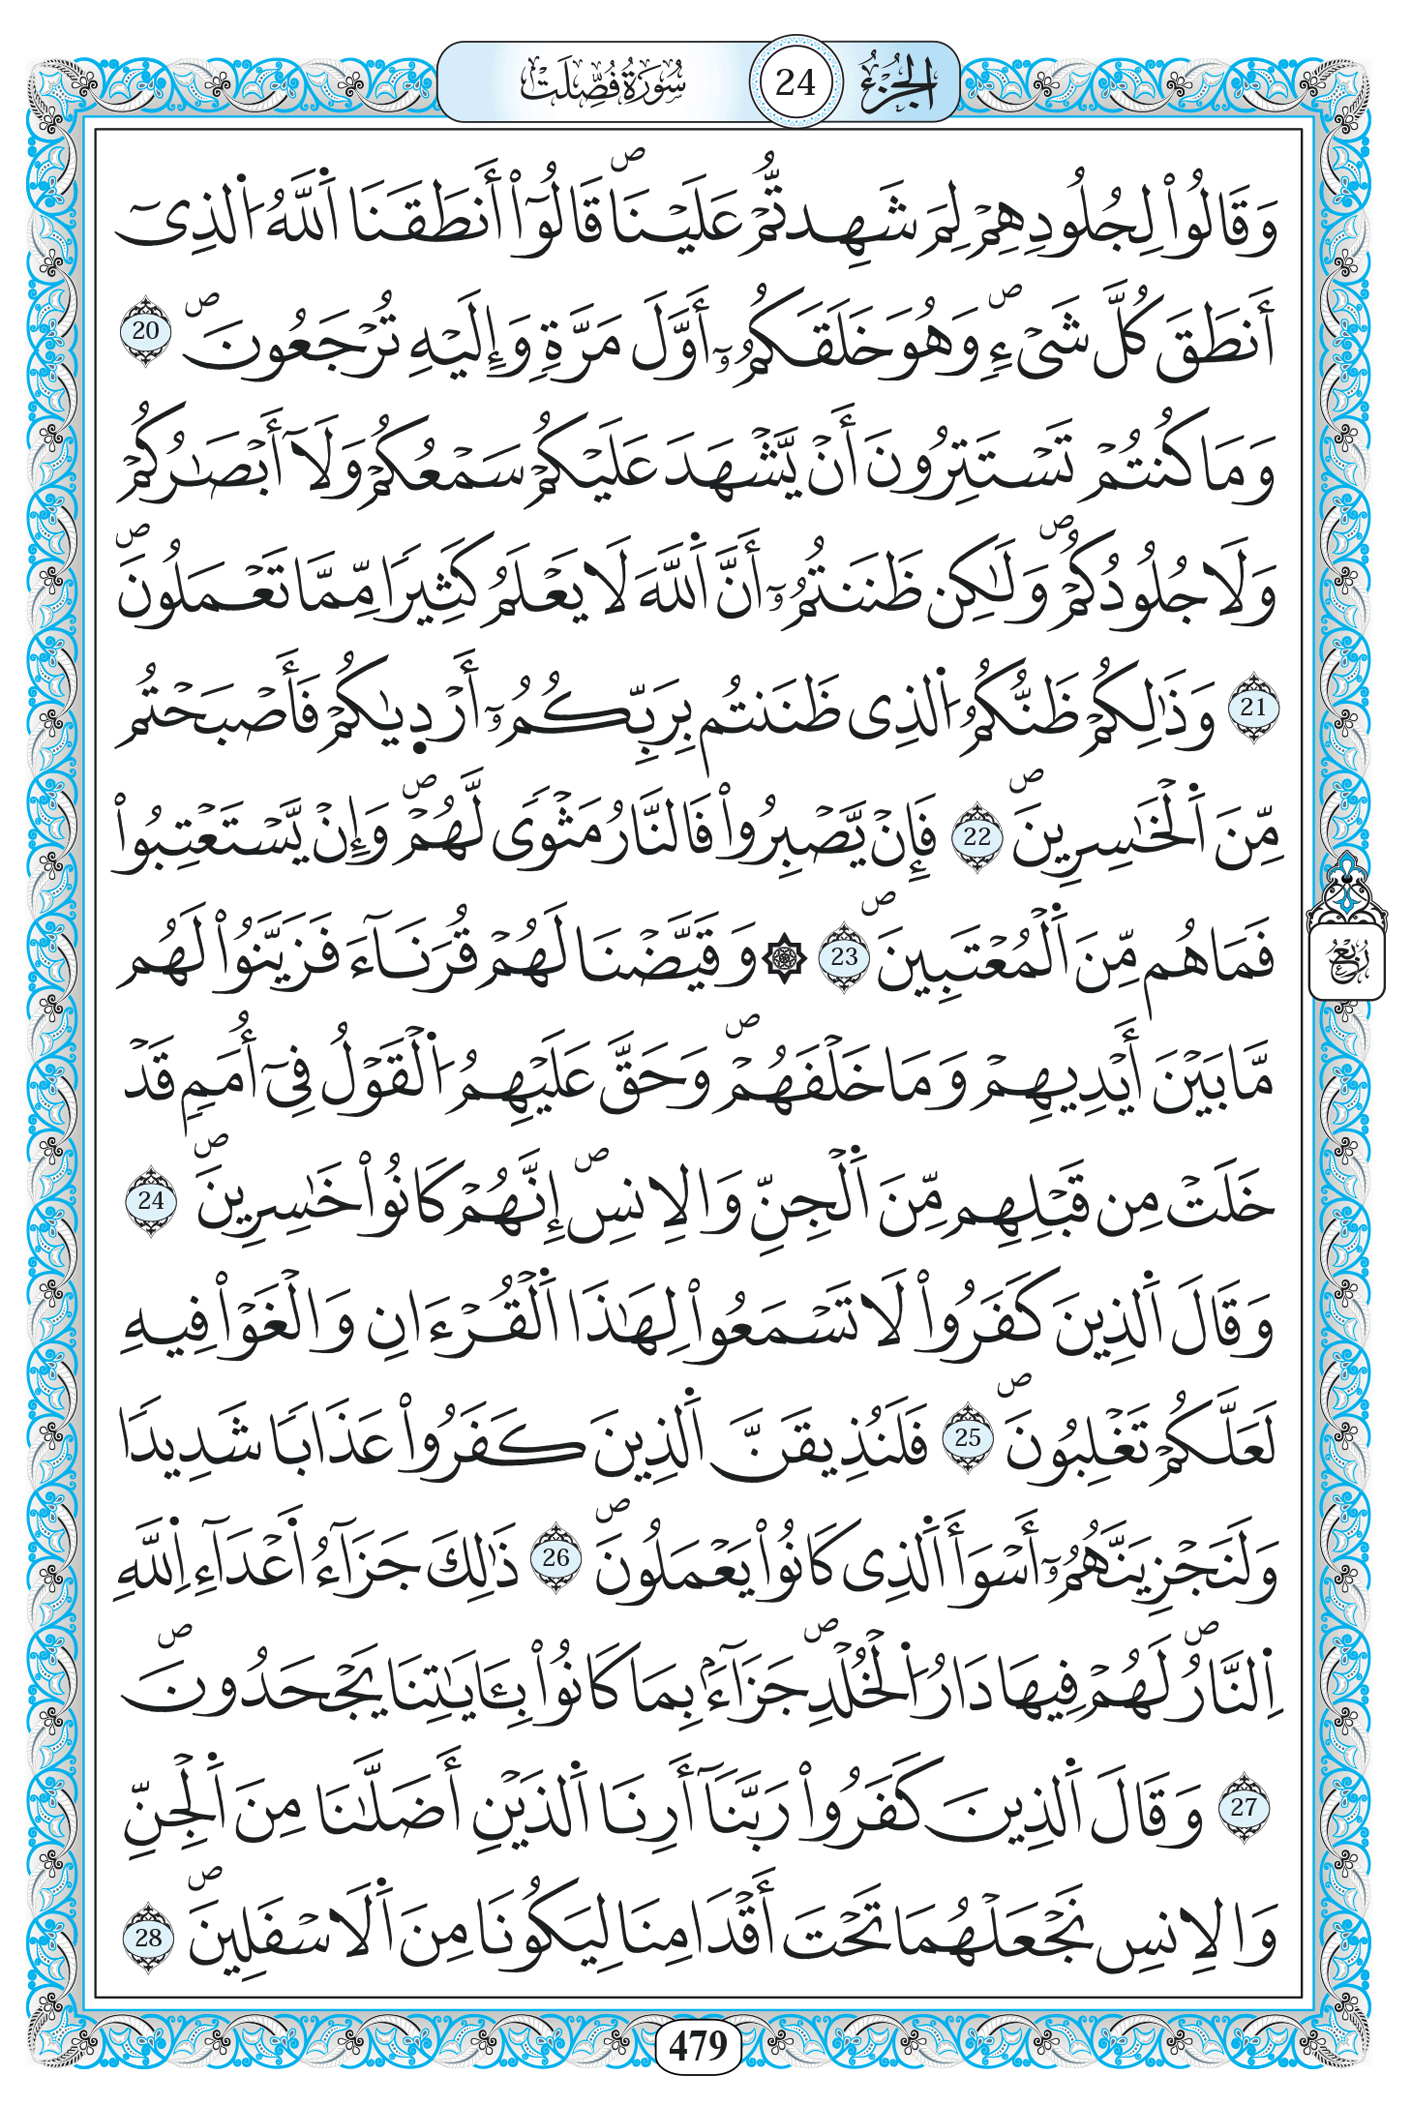 الجُزْءُ 24 سُورَةُ فُصِّلَتْ
وَقَالُواْ لِجُلُودِهِمْ لِمَ شَهِدتُّمْ عَلَيْنَاۖ قَالُوٓاْ أَنطَقَنَا اَ۬للَّهُ اُ۬لذِےٓ
أَنطَقَ كُلَّ شَےْءٖۖ وَهُوَ خَلَقَكُمُۥٓ أَوَّلَ مَرَّةٖ وَإِلَيْهِ تُرْجَعُونَۖ 20
وَمَا كُنتُمْ تَسْتَتِرُونَ أَنْ يَّشْهَدَ عَلَيْكُمْ سَمْعُكُمْ وَلَآ أَبْصَٰرُكُمْ
وَلَا جُلُودُكُمْۖ وَلَٰكِن ظَنَنتُمُۥٓ أَنَّ اَ۬للَّهَ لَا يَعْلَمُ كَثِيراٗ مِّمَّا تَعْمَلُونَۖ
21 وَذَٰلِكُمْ ظَنُّكُمُ اُ۬لذِے ظَنَنتُم بِرَبِّكُمُۥٓ أَرْد۪يٰكُمْ فَأَصْبَحْتُم
مِّنَ اَ۬لْخَٰسِرِينَۖ 22 فَإِنْ يَّصْبِرُواْ فَالنَّارُ مَثْويٗ لَّهُمْۖ وَإِنْ يَّسْتَعْتِبُواْ
فَمَا هُم مِّنَ اَ۬لْمُعْتَبِينَۖ 23 ۞ وَقَيَّضْنَا لَهُمْ قُرَنَآءَ فَزَيَّنُواْ لَهُم
مَّا بَيْنَ أَيْدِيهِمْ وَمَا خَلْفَهُمْۖ وَحَقَّ عَلَيْهِمُ اُ۬لْقَوْلُ فِےٓ أُمَمٖ قَدْ
خَلَتْ مِن قَبْلِهِم مِّنَ اَ۬لْجِنِّ وَالِانسِۖ إِنَّهُمْ كَانُواْ خَٰسِرِينَۖ 24
وَقَالَ اَ۬لذِينَ كَفَرُواْ لَا تَسْمَعُواْ لِهَٰذَا اَ۬لْقُرْءَانِ وَالْغَوْاْ فِيهِ
لَعَلَّكُمْ تَغْلِبُونَۖ 25 فَلَنُذِيقَنَّ اَ۬لذِينَ كَفَرُواْ عَذَاباٗ شَدِيداٗ
وَلَنَجْزِيَنَّهُمُۥٓ أَسْوَأَ اَ۬لذِے كَانُواْ يَعْمَلُونَۖ 26 ذَٰلِكَ جَزَآءُ اَ۬عْدَآءِ اِ۬للَّهِ
اِ۬لنَّارُۖ لَهُمْ فِيهَا دَارُ اُ۬لْخُلْدِۖ جَزَآءَۢ بِمَا كَانُواْ بِـَٔايَٰتِنَا يَجْحَدُونَۖ
27 وَقَالَ اَ۬لذِينَ كَفَرُواْ رَبَّنَآ أَرِنَا اَ۬لذَيْنِ أَضَلَّٰنَا مِنَ اَ۬لْجِنِّ
وَالِانسِ نَجْعَلْهُمَا تَحْتَ أَقْدَامِنَا لِيَكُونَا مِنَ اَ۬لَاسْفَلِينَۖ 28
رُبُعُ
479